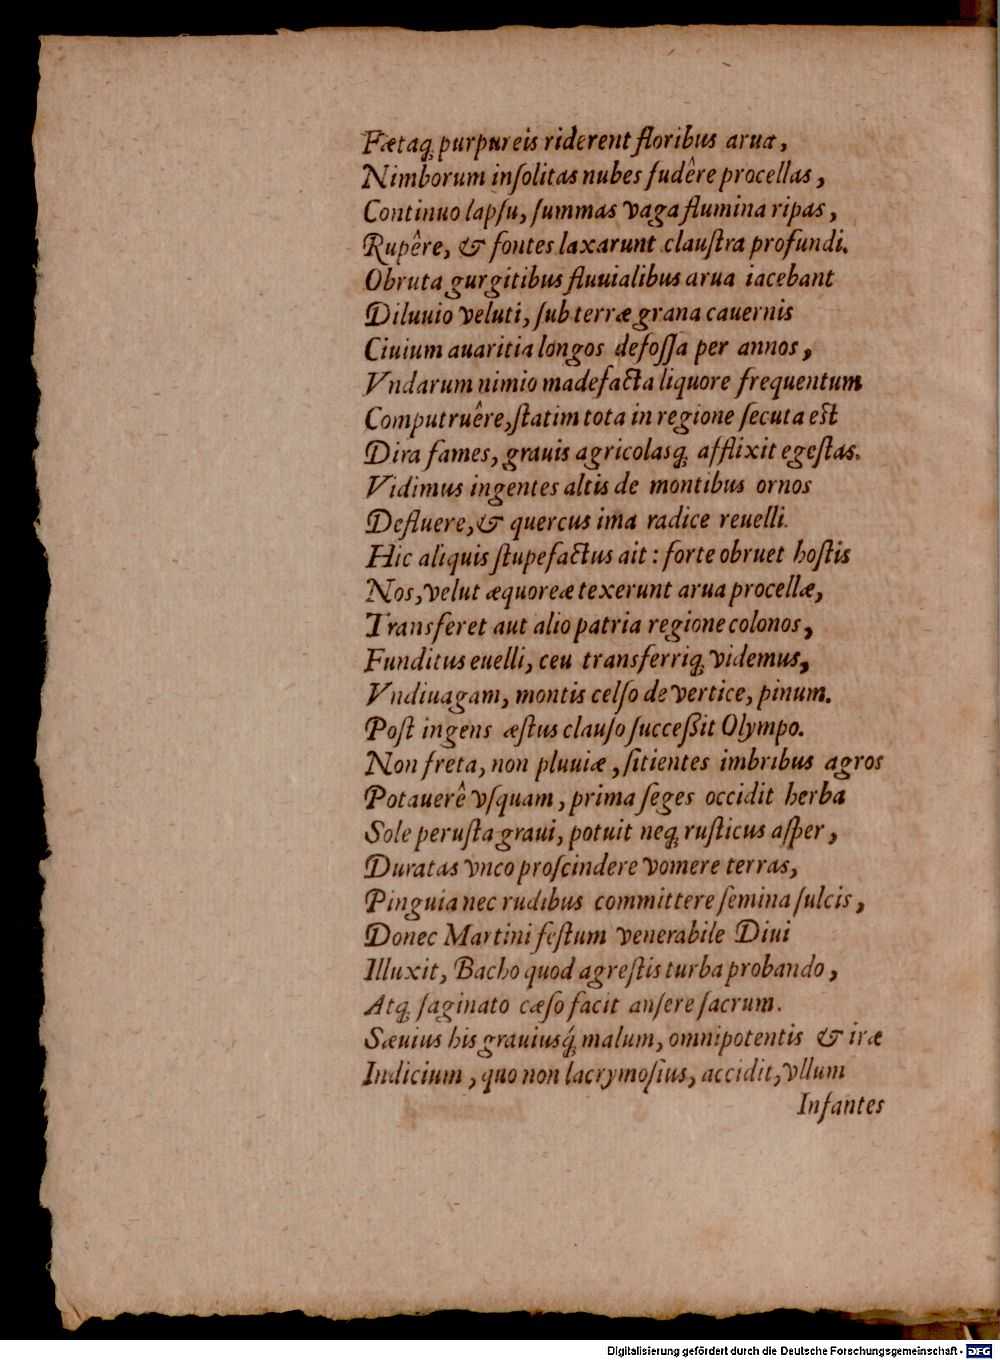 Fætaq́ꝫ purpureis riderent floribus arua,
Nimborum inſolitas nubes fudêre procellas,
Continuo lapſu, ſummas vaga flumina ripas,
Rupêre, & fontes laxarunt clauſtra profundi.
Obruta gurgitibus fluuialibus arua iacebant
Diluuio veluti, ſub terræ grana cauernis
Ciuium auaritia longos defoſſa per annos,
Vndarum nimio madefacta liquore frequentum
Computruêre, ſtatim tota in regione ſecuta eſt
Dira fames, grauis agricolasqꝫ afflixit egeſtas.
Vidimus ingentes altis de montibus ornos
Defluere, & quercus ima radice reuelli.
Hic aliquis ſtupefactus ait: forte obruet hoſtis
Nos, velut æquoreæ texerunt arua procellæ,
Transferet aut alio patria regione colonos,
Funditus euelli, ceu transferriqꝫ videmus,
Vndiuagam, montis celſo de vertice, pinum.
Poſt ingens æſtus clauſo ſucceßit Olympo.
Non freta, non pluuiæ, ſitientes imbribus agros
Potauerê vſquam, prima ſeges occidit herba
Sole peruſta graui, potuit neqꝫ ruſticus aſper,
Duratas vnco proſcindere vomere terras,
Pinguia nec rudibus committere ſemina ſulcis,
Donec Martini feſtum venerabile Diui
Illuxit, Bacho quod agreſtis turba probando,
Atqꝫ ſaginato cæſo facit anſere ſacrum.
Sæuius his grauiusq́ꝫ malum, omnipotentis & iræ
Indicium, quo non lacrymoſius, accidit, vllum
Infantes
Digitalisierung gefördert durch die Deutsche Forschungsgemeinschaft - DFG